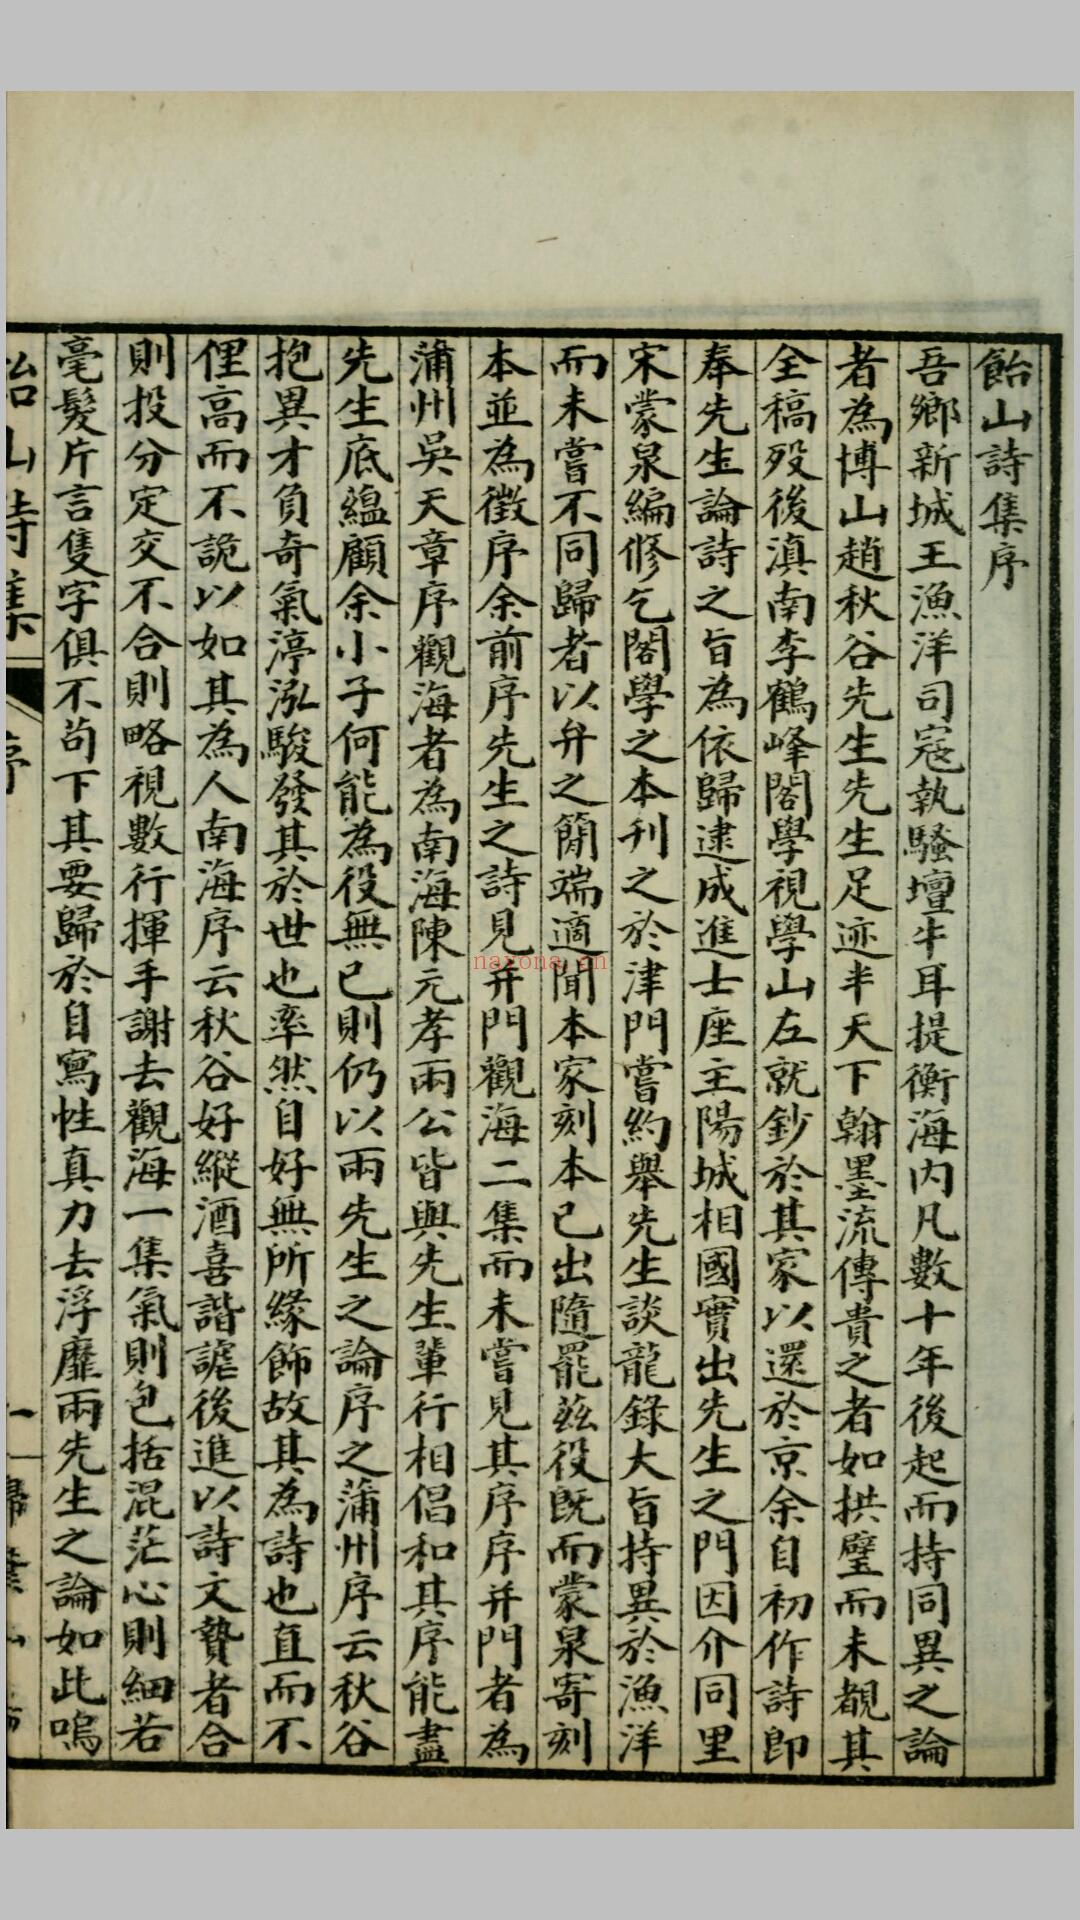 飴山詩集序
吾鄉新城王漁洋司寇執騷壇牛耳提衡海内凡數十年後起而持同異之論
者為博山趙秋谷先生先生足迹半天下翰墨流傳貴之者如拱璧而未覩其
全稿歿後滇南李鶴峰閣學視學山左就鈔於其家以還於京余自初作詩即
奉先生論詩之旨為依歸逮成進士座主陽城相國實出先生之門因介同里
宋蒙泉編修乞閣學之本刊之於津門嘗約舉先生談龍錄大旨持異於漁洋
而未嘗不同歸者以弁之簡端適聞本家刻本已出隨罷茲役既而蒙泉寄刻
本並為徵序余前序先生之詩見并門觀海二集而未嘗見其序序并門者為
蒲州吳天章序觀海者為南海陳元孝兩公皆與先生輩行相倡和其序能盡
先生底蘊顧余小子何能為役無已則仍以兩先生之論序之蒲州序云秋谷
抱異才負奇氣渟泓駿發其於世也率然自好無所緣飾故其為詩也直而不
俚高而不詭以如其為人南海序云秋谷好縱酒喜諧謔後進以詩文贄者合
則投分定交不合則略視數行揮手謝去觀海一集氣則包括混茫心則細若
毫髮片言隻字俱不苟下其要歸於自寫性真力去浮靡兩先生之論如此嗚
飴山詩集
序
一
掃葉山房
naxona.cn